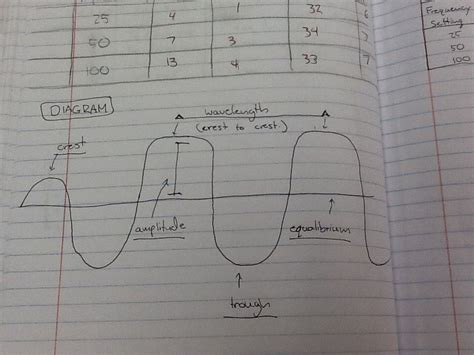 25 4 1 32 6
50 7 3 34
100 13 4 33 7
Frequency
Setting
25
50
100
DIAGRAM
wavelength
(crest to crest)
crest
amplitude
equalibrium
trough